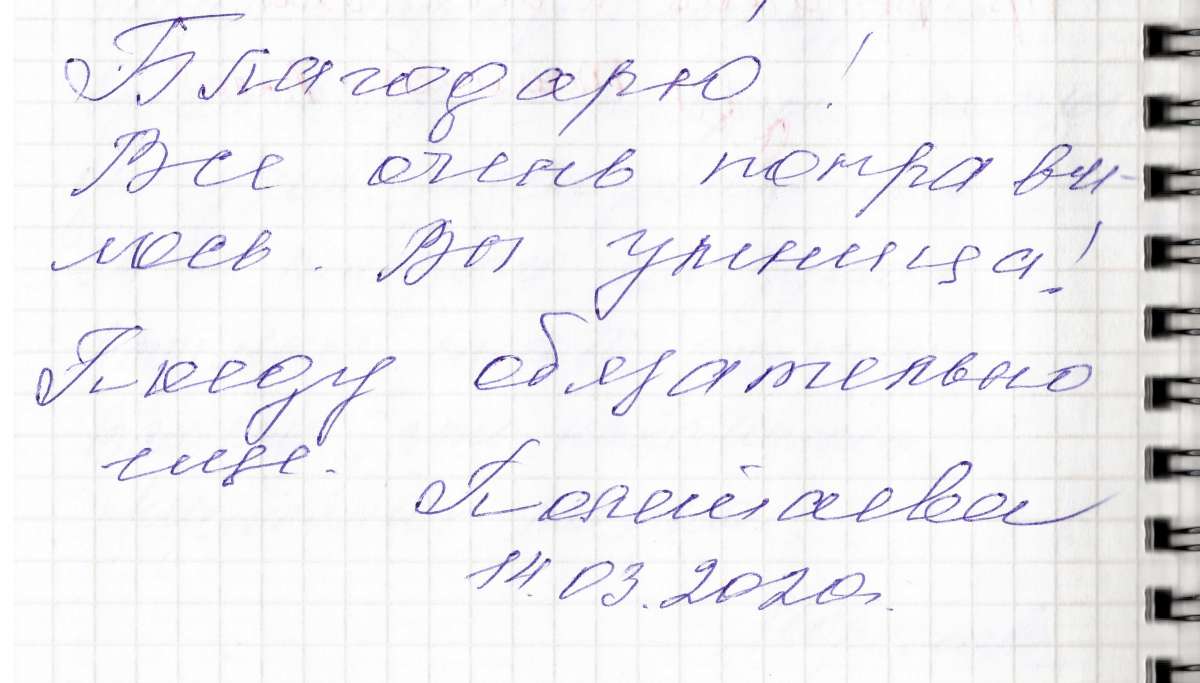 Благодарю!
Все очень понрави-
лось. Вы умница!
Приеду обязательно
еще.
14.03.2020г.